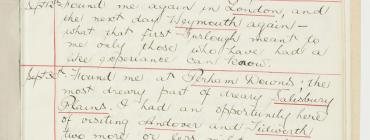 Sept 12th Found me again in London, and
the next day Weymouth again -
what that first Furlough meant to
me only those who have had a
like experience can know.
Sept 30th Found me at Perham Downs; the
most dreary part of dreary Salisbury
Plains. I had an opportunity here
of visiting Andover and Tidworth
two more or less